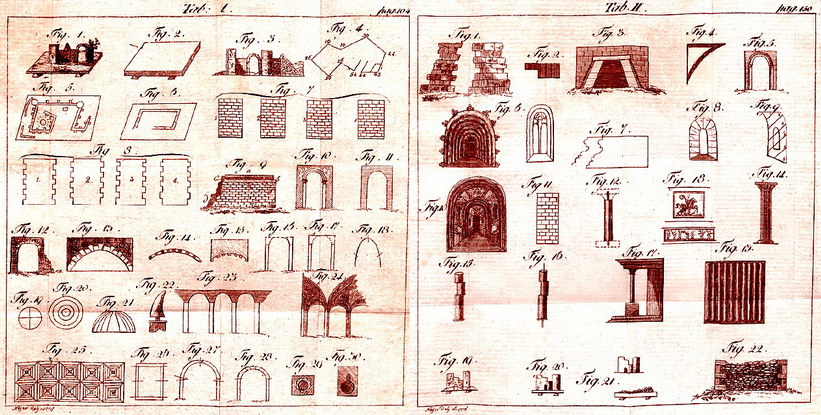 Tab: I. pag. 104
Fig. 1. Fig. 2. Fig. 3 Fig. 4.
Fig. 5. Fig. 6. Fig. 7
Fig 8. Fig. 9 Fig. 10. Fig. 11.
1. 2. 3. 4.
Fig. 12. Fig. 13. Fig. 14. Fig. 15. Fig. 16. Fig. 17. Fig. 18.
Fig. 19. Fig. 20. Fig. 21 Fig. 22. Fig. 23 Fig. 24.
Fig. 25. Fig. 26. Fig. 27. Fig. 28. Fig. 29 Fig. 30.
Tab. II. pag. 130
Fig. 1. Fig. 2. Fig. 3. Fig. 4. Fig. 5.
Fig. 6. Fig. 7. Fig. 8. Fig. 9.
Fig. 11. Fig. 12. Fig. 13. Fig. 14.
Fig. 15. Fig. 16. Fig. 17. Fig. 18.
Fig. 19. Fig. 20. Fig. 21. Fig. 22.